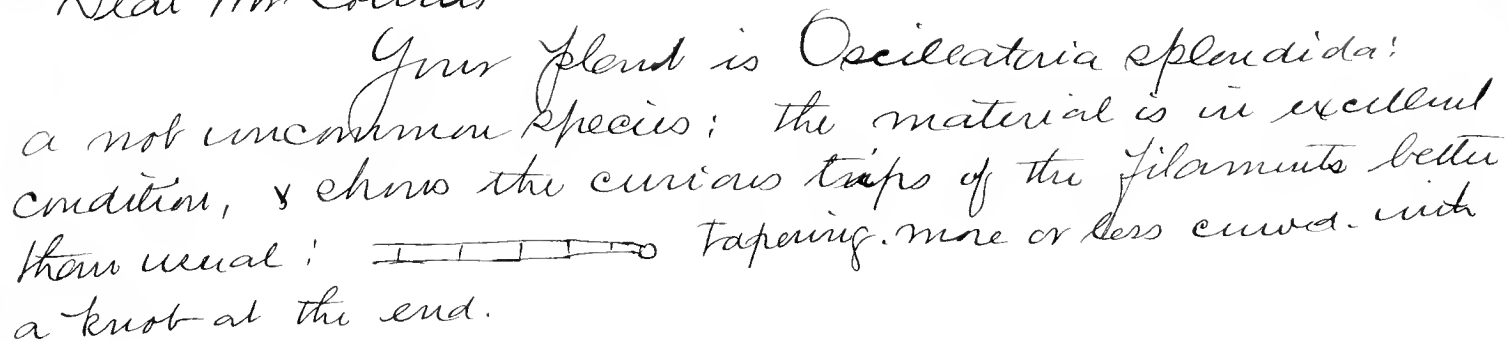 Dear Mr Collins
Your plant is Oscillatoria splendida:
a not uncommon species; the material is in excellent
condition, & shows the curious tips of the filaments better
than usual: tapering. more or less curved. with
a knob at the end.